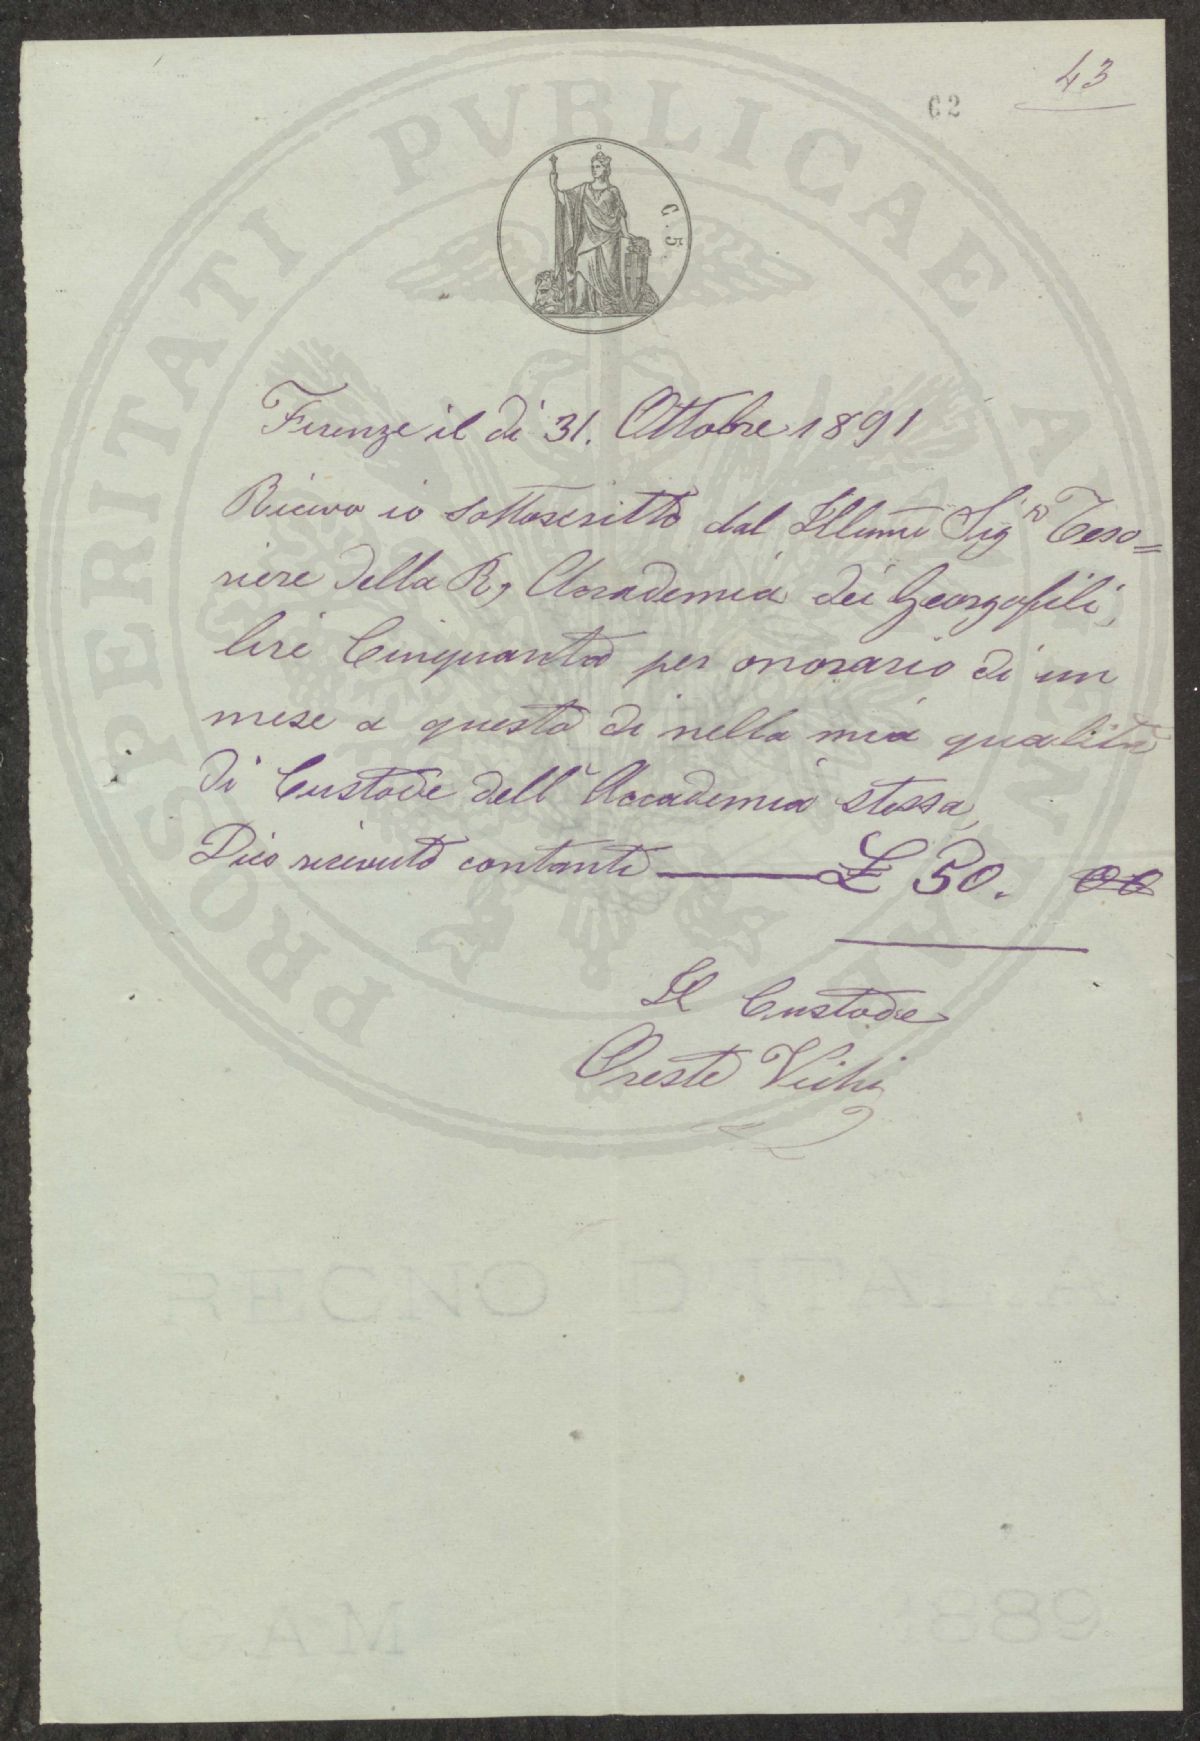 43
62
C. 5
Firenze il dì 31. Ottobre 1891
Ricevo io sottoscritto dal Illumo Sigr Teso=
riere della R, Accademia dei Georgofili,
lire Cinquanta per onorario di un
mese a questo di nella mia qualità
di Custode dell' Accademia stessa,
Dico ricevuto contanti £ 50. 00
Il Custode
Oreste Vichi
PROSPERITATI PVBLICAE AVGENDAE
REGNO D'ITALIA
G.A.M 1889